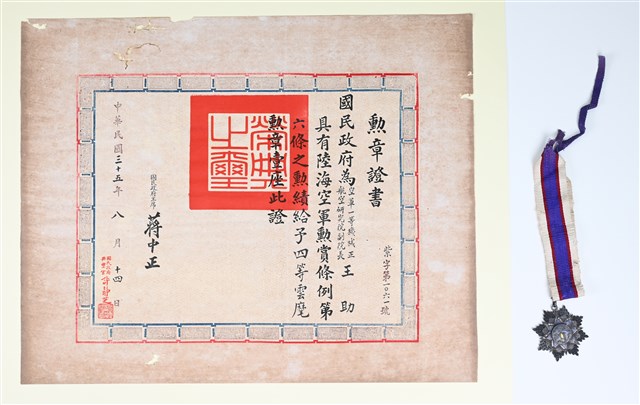 勲章證書
紫字第一〇六一號
國民政府為空軍一等機械正航空研究院副院長王助
具有陸海空軍勲賞條例第
六條之勲績給予四等雲麾
勲章壹座此證
榮典之璽
國民政府主席
蔣中正
中華民國三十五年八月十四日